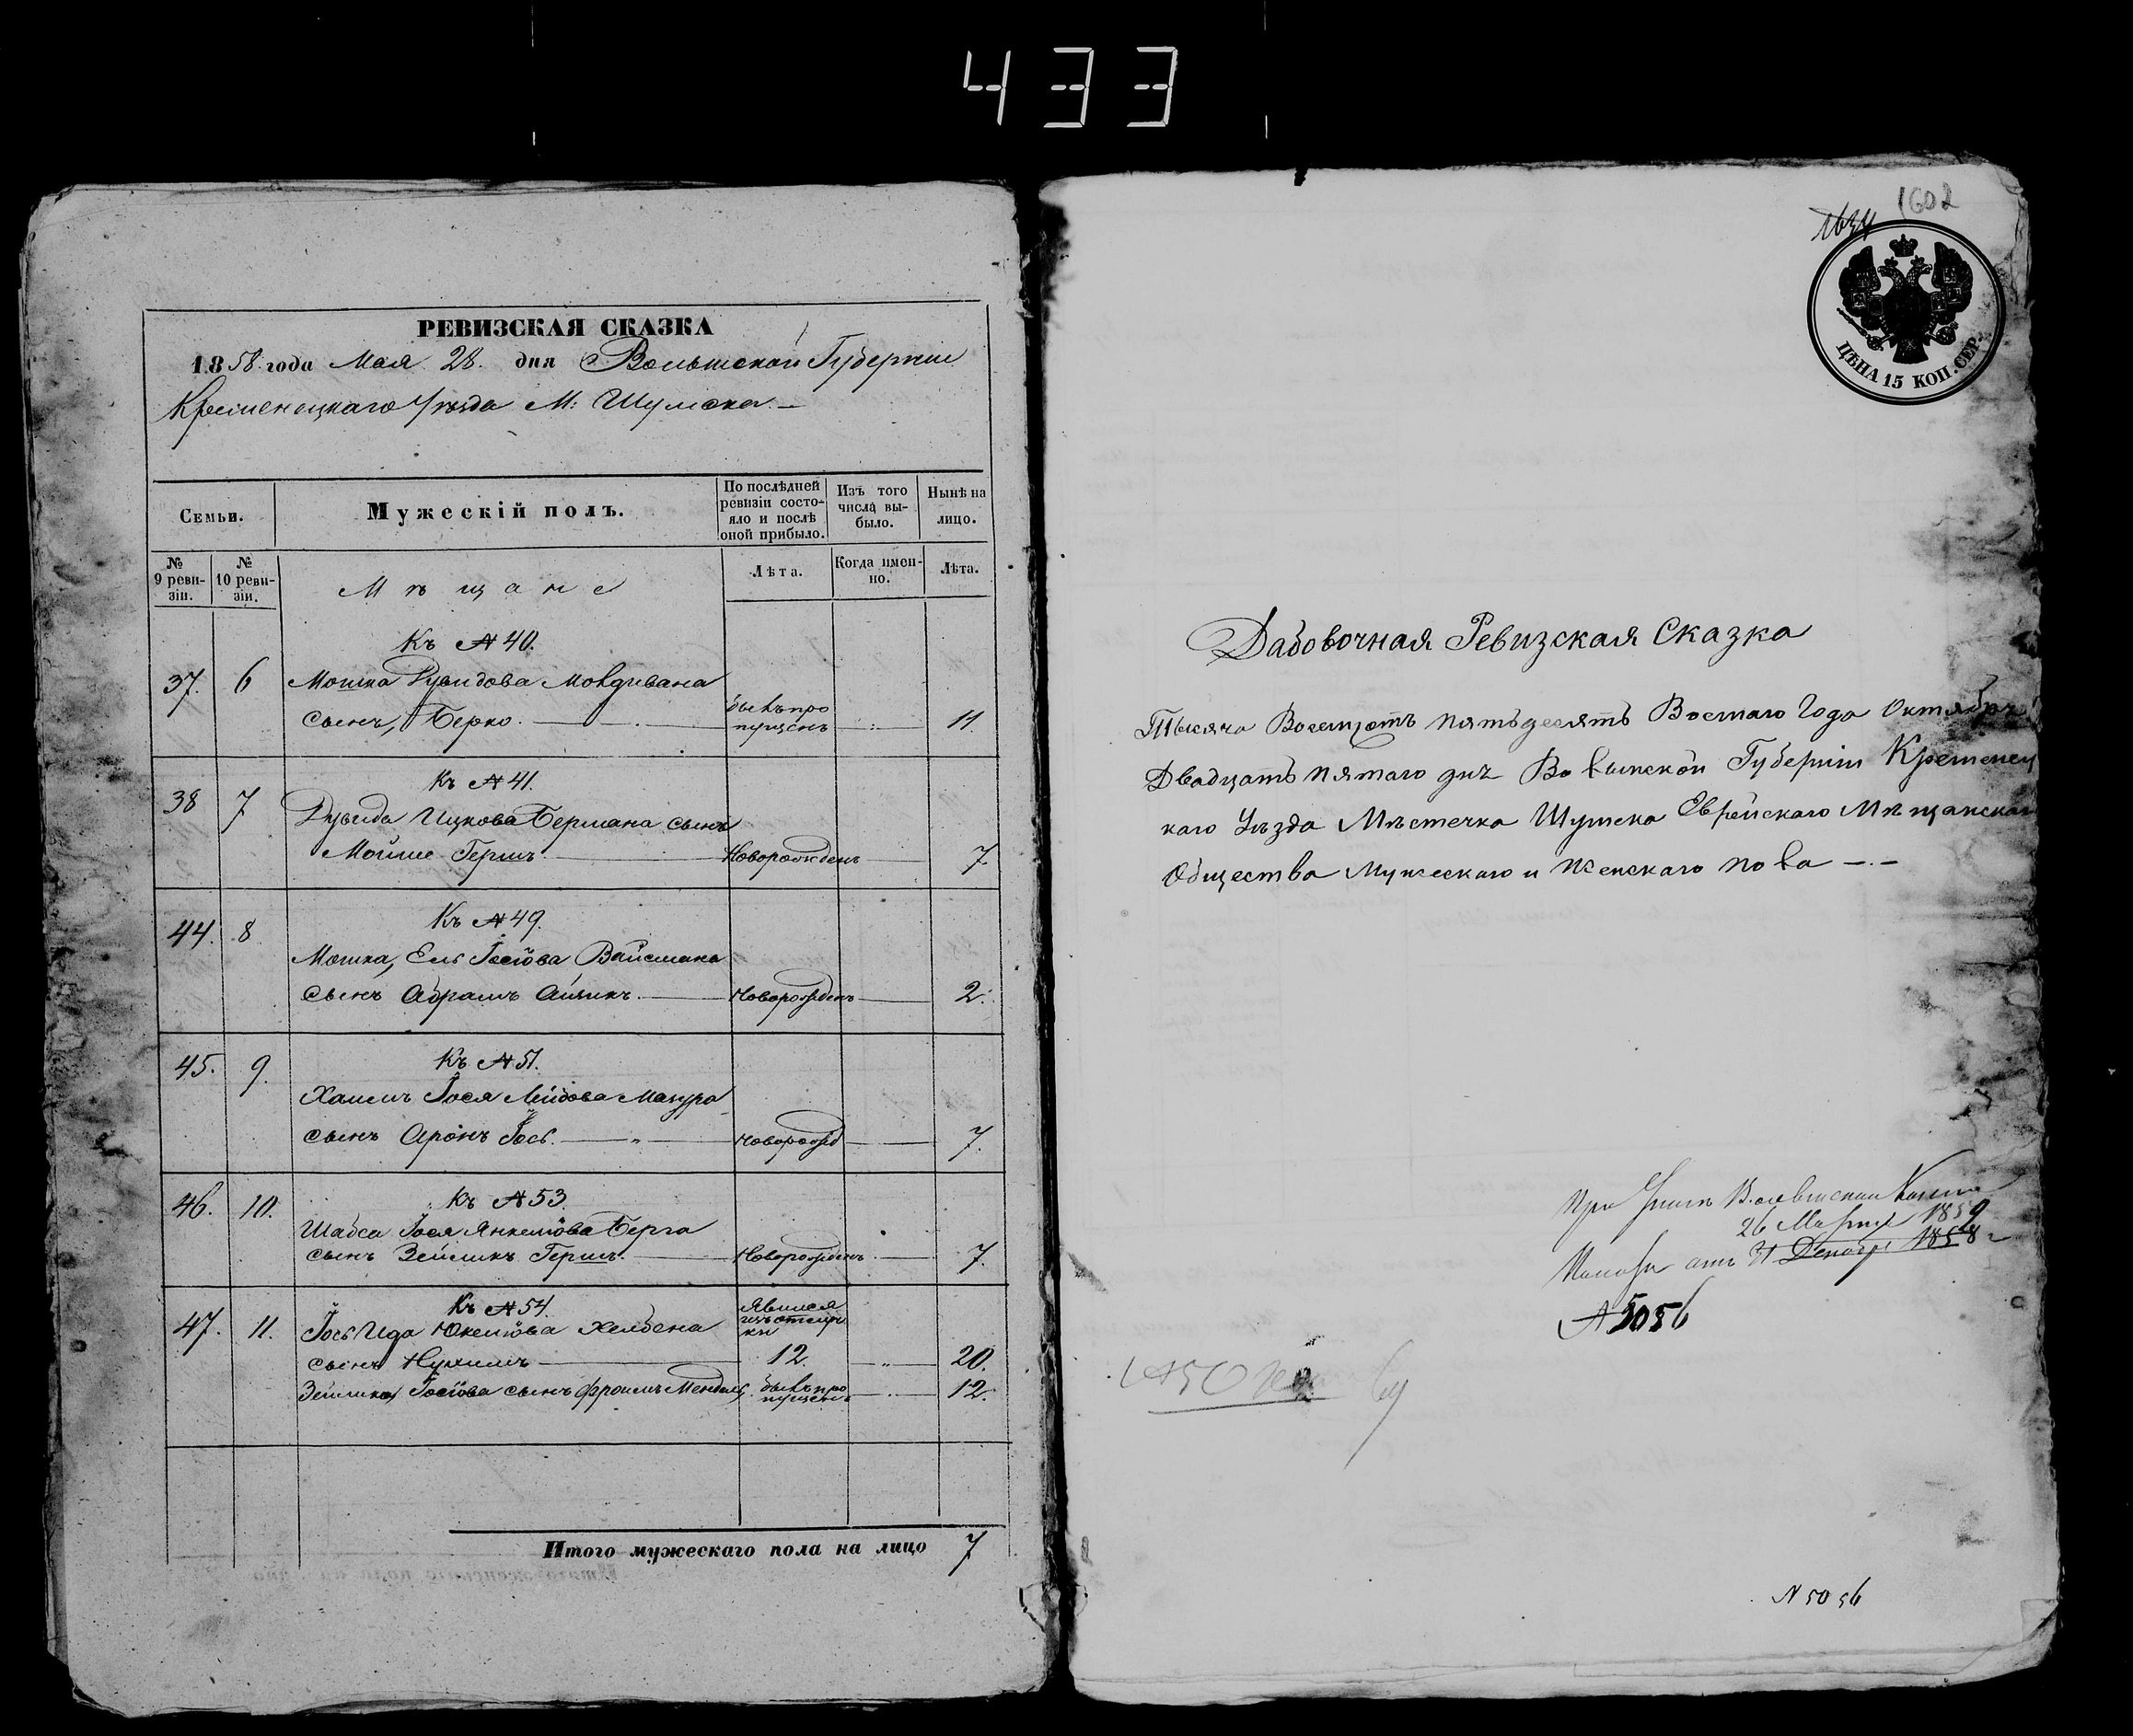 433
РЕВИЗСКАЯ СКАЗКА
1858 года Мая 28. дня Волынской Губернии
Кременецкаго Уѣзда М: Шумска. —
Семьи.
Мужескій полъ.
По послѣдней ревизіи состояло и послѣ оной прибыло.
Изъ того числа выбыло.
Нынѣ на лицо.
№ 9 ревизіи.
№ 10 ревизіи.
Мѣщане
Лѣта.
Когда именно.
Лѣта.
Къ № 40.
37. 6 Мошка Рувидова
сынъ, Берко. былъ пропущенъ 11.
Къ № 41.
38 7 Рувида Ицкова Бермана сынъ
Мойше Гершъ. Новорожденъ 7.
Къ № 49.
44. 8. Мошка, Ель Іосіова Вайсмана
сынъ Абрамъ Айзикъ. Новорожденъ 2.
Къ № 51.
45. 9. Хаимъ Іося Лейбова Мазура
сынъ Аронъ Іось. Новорожд 7.
Къ № 53.
46. 10. Шабса Іося Янкелiова Берга
сынъ Зейликъ Гершъ. Новорожденъ 7.
Къ № 54.
47. 11. Іось Ида Юкелiова
сынъ Нухимъ 12. 20.
Зейлика Іосіова сынъ Фроимъ Мендель былъ пропущенъ 12.
Итого мужескаго пола на лицо 7
1602
1634
ЦѢНА 15 КОП. СЕР.
Дабовочная Ревизская Сказка
Тысяча Восемсотъ пятьдесятъ Восмаго Года Октября
Двадцать пятаго дня Волынской Губерніи Кременец
каго Уѣзда Мѣстечка Шумска Еврейскаго Мѣщанскаго
Общества Мужескаго и Женскаго пола —.—
26 Марта 1859
отъ 31 Декабр 1858 г
№ 5056
N 5056